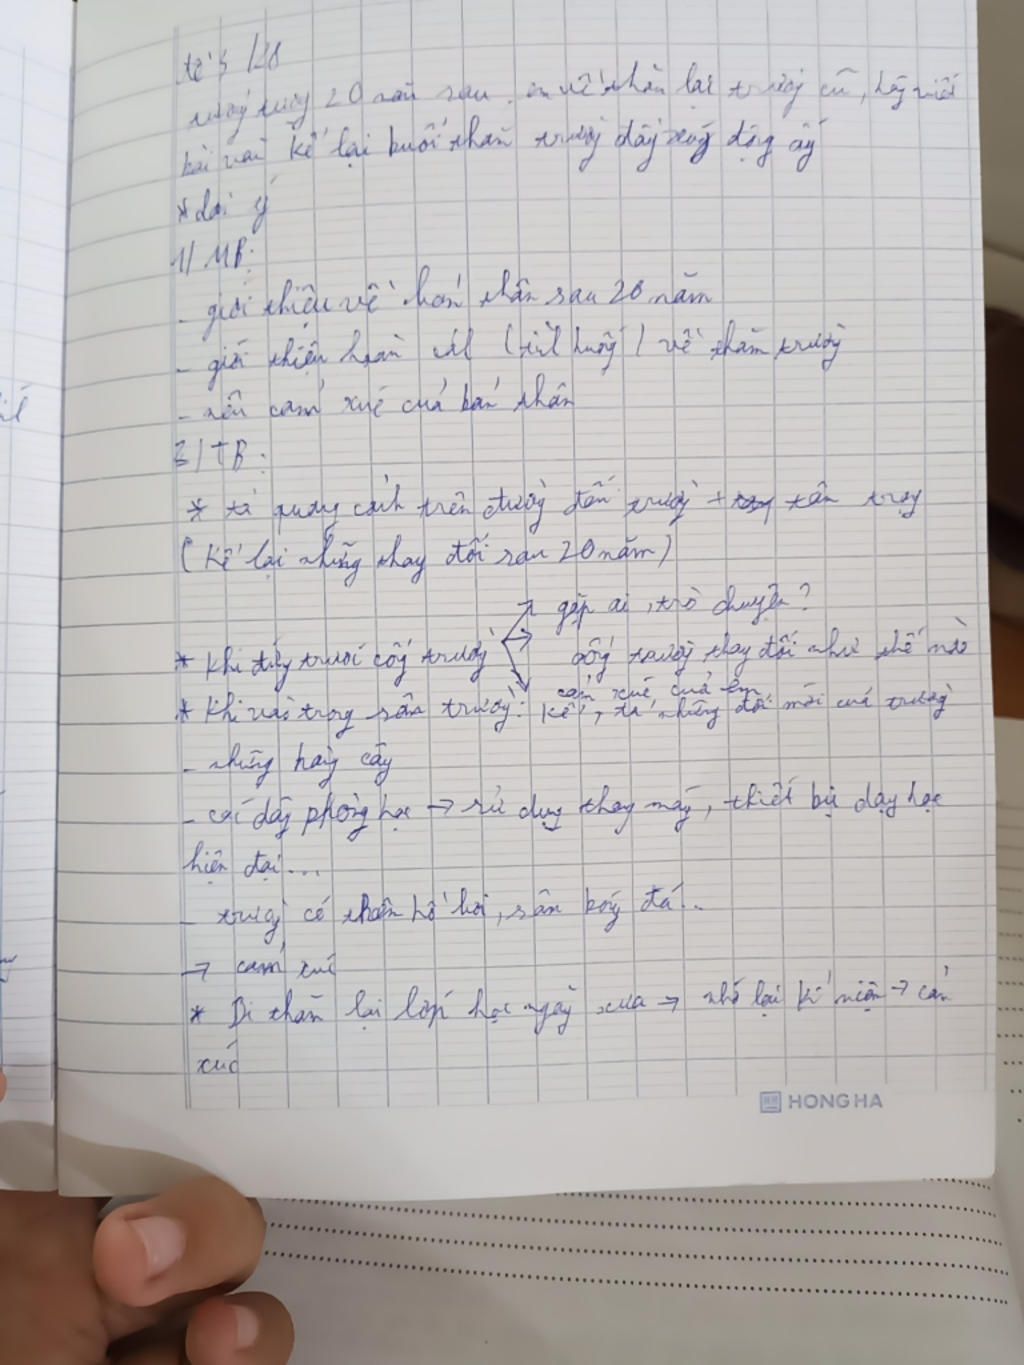 tưởng tượng 20 năm sau, em về thăm lại trường cũ, hãy viết
bài văn kể lại buổi thăm trường đầy xúc động ấy
* dài ý
1/ MB:
- giới thiệu về bản thân sau 20 năm
- giới thiệu hoàn cảnh (tình huống) về thăm trường
- nêu cảm xúc của bản thân
2/ TB:
* tả quang cảnh trên đường đến trường + tâm trạng
(kể lại những thay đổi sau 20 năm)
gặp ai, trò chuyện?
* Khi đứng trước cổng trường cổng trường thay đổi như thế nào
cảm xúc của em
* Khi vào trong sân trường: kể, tả những đổi mới của trường
- những hàng cây
- các dãy phòng học → sử dụng thang máy, thiết bị dạy học
hiện đại...
- trường có thêm hồ bơi, sân bóng đá..
→ cảm xúc
* Đi thăm lại lớp học ngày xưa → nhớ lại kỉ niệm → cảm
xúc
HONG HA